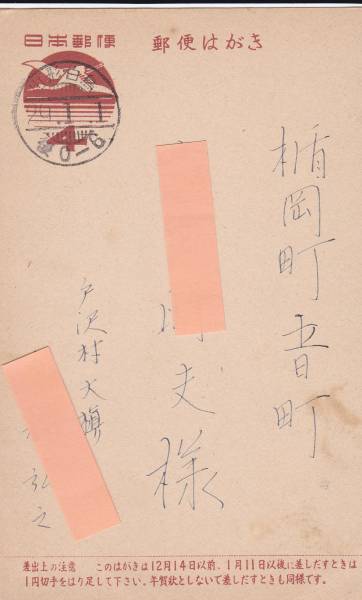 日本郵便 郵便はがき
29.1.1
4
楯岡町晋町
夫様
戸沢村大旗
弘之
差出上の注意 このはがきは12月14日以前、1月11日以後に差しだすときは
1円切手をはり足して下さい。年賀状としないで差しだすときも同様です。